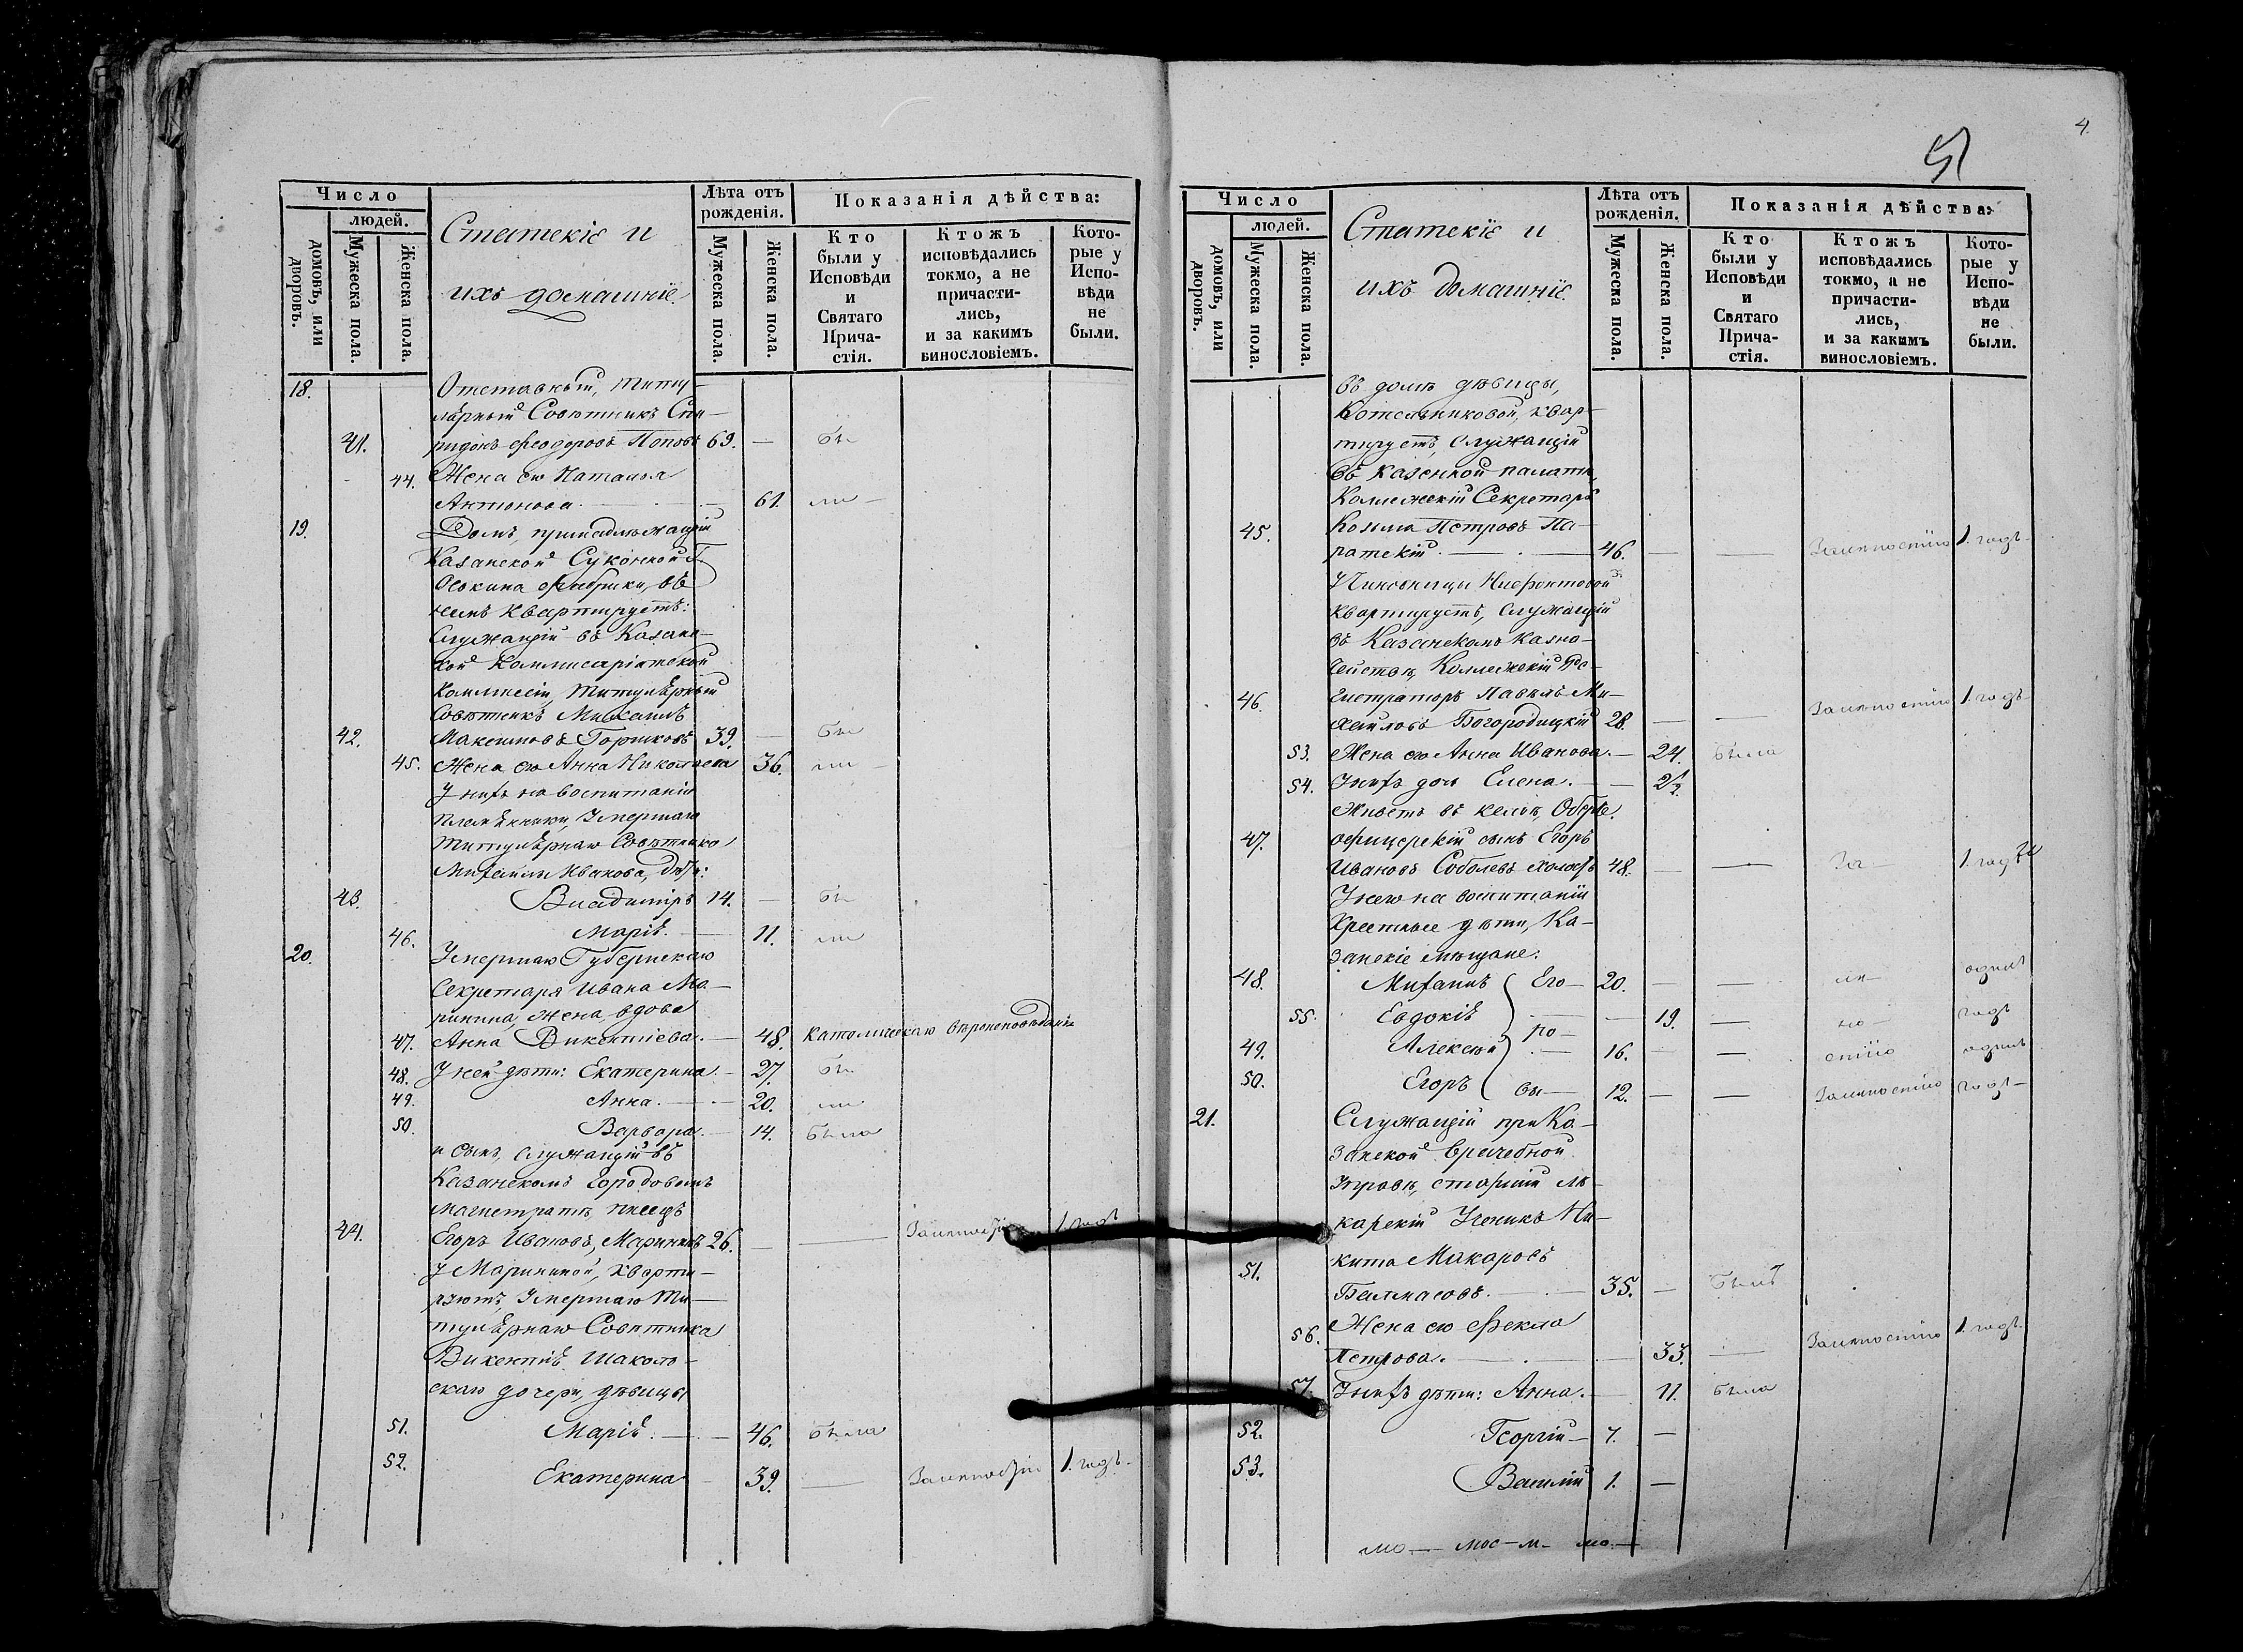 Число
людей.
домовъ, или дворовъ.
Мужеска пола.
Женска пола.
Статскіе и
ихъ домашніе
Лѣта отъ рожденія.
Мужеска пола.
Женска пола.
Показанія дѣйства:
Кто были у Исповѣди и Святаго Прича-стія.
Ктожъ исповѣдались токмо, а не причасти-лись, и за какимъ винословіемъ.
Кото-рые у Испо-вѣди не были.
18. Отставный, Титу-
лярный Совѣтникъ Спи-
41. ридонъ Феодоровъ Поповъ 69. — бы
44. Жена его Наталья
Антонова. — 61. ли —
19. Домъ, принадлежащій
Казанской Суконной Г.
Осокина фабрики, въ
немъ квартируетъ:
Служащій въ Казан-
ской Коммисаріатской
Коммисіи, Титулярный
Совѣтникъ Михаилъ
42. Максимовъ Горшковъ 39. — бы
45. Жена его Анна Николаева 36. ли —
У нихъ на воспитаніи
племянники, Умершаго
Титулярнаго Совѣтника
Михаила Иванова, дѣти:
43. Владиміръ 14. — бы
46. Марія. — 11. ли
20. Умершаго Губернскаго
Секретаря Ивана Ма-
ринина, жена, вдова
47. Анна Викентіева. — 48. Католическаго вѣроисповѣданія
48. У ней дѣти: Екатерина. — 27. бы
49. Анна. — 20. ли
50. Варвара. — 14. была
и сынъ, служащій въ
Казанскомъ Городовомъ
магистратѣ, писецъ
44. Егоръ Ивановъ, Марининъ 26. — —
1. годъ
У Марининой, кварти-
руютъ, Умершаго Ти-
тулярнаго Совѣтника
Викентія
скаго дочери, дѣвицы
51. Марія. — 46. была
52. Екатерина — 39. — 1. годъ.
4.
Число
людей.
домовъ, или дворовъ.
Мужеска пола.
Женска пола.
Статскіе и
ихъ домашніе.
Лѣта отъ рожденія.
Мужеска пола.
Женска пола.
Показанія дѣйства:
Кто были у Исповѣди и Святаго Прича-стія.
Ктожъ исповѣдались токмо, а не причасти-лись, и за какимъ винословіемъ.
Кото-рые у Испо-вѣди не были.
въ домѣ дѣвицы,
Котельниковой, квар-
тируетъ, Служащій
въ казенной палатѣ,
Коллежскій Секретарь
45. Козьма Петровъ Па-
ратскій. — 46. — — Залѣностію 1. годъ
Чиновницы
квартируетъ, Служащій
въ Казанскомъ казна-
чействѣ, Коллежскій Ре-
46. гистраторъ Павелъ Ми-
хайловъ Богородицкій 28. — — Залѣностію 1. годъ
53. Жена его Анна Иванова. — 24. была
54. У нихъ дочь Елена. — 2½
Живетъ въ кельѣ, Оберъ
47. офицерскій сынъ Егоръ
Ивановъ Соболевъ холостъ 48. — — За 1. годъ
У него на воспитаніи
Крестные дѣти, Ка-
занскіе мѣщане:
48. Михаилъ Его- 20. — — лѣ- одинъ
55. Евдокія — 19. — но- годъ
49. Алексѣй ро- 16. — — стію одинъ
50. Егоръ вы — 12. — — Залѣностію годъ —
21. Служащій при Ка-
занской Врачебной
Управѣ, старшій лѣ-
карскій Ученикъ Ни-
51. кита Макаровъ
35. — былъ
56. Жена его Фекла
Петрова. — 33. — Залѣностію 1. годъ.
57. У нихъ дѣти: Анна. — 11. была
52. Георгій — 7. —
53. Василій 1. —